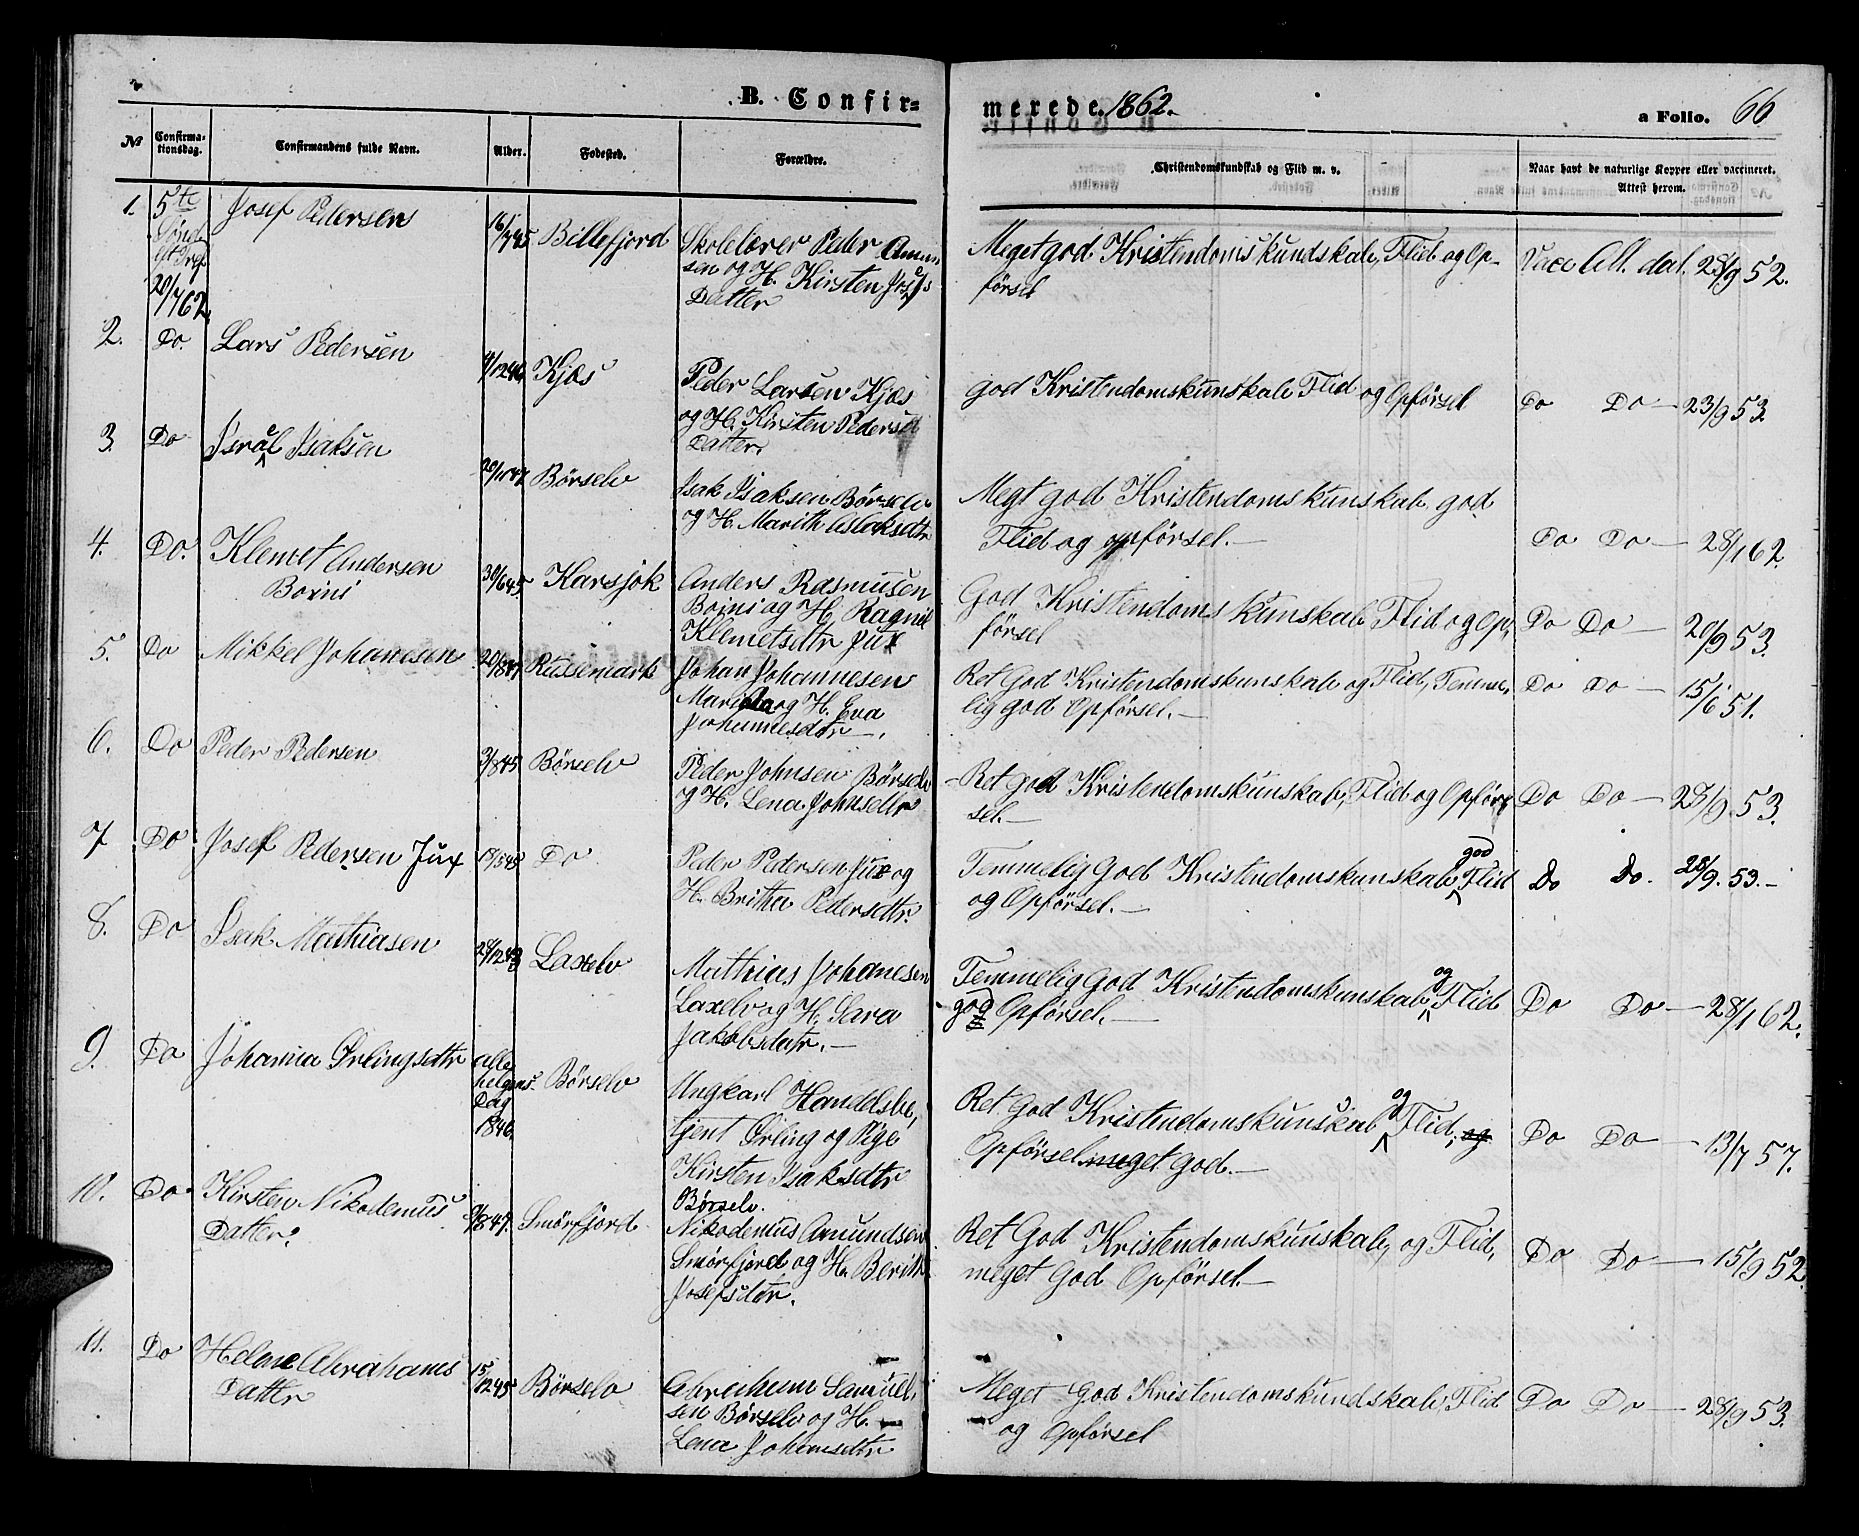 B. Confir=
merede. 1862.
a Folio. 66
№
Confirma-
tionsdag.
Confirmandens fulde Navn.
Alder.
Fødested.
Forældre.
Christendomskundskab og Flid m. v.
Naar havt de naturlige Kopper eller vaccineret.
Attest herom.
1. 5te Josef Pedersen 16/7 45 Billefjord Skolelærer Peder Amun
Sønd. sen og H. Kirsten Josefs
eft Tref Datter
20/7 62.
Meget god Kristendomskundskab, Flid og Op-
førsel
Vacc Att. dat. 28/9 52.
2. Do. Lars Pedersen 4/12 46 Kjæs Peder Larsen Kjæs
og H. Kirsten Peders
Datter.
god Kristendomskunskab Flid og Opførsel
Do Do — 23/9 53
3. Do Israel Isaksen 20/10 47 Børselv Isak Isaksen Børselv
og H. Marith Aslaksdtr
Megt god Kristendomskunskab god
Flid og opførsel.—
Do Do — 28/1 62
4. Do. Klemet Andersen 30/6 45 Karasjok Anders Rasmusen
Boini Boini og H. Ragnil
Klemetsdtr Jux
God Kristendomskunskab Flid og Op,
førsel
Do Do — 20/9 53.
5. Do Mikkel Johanesen 20/8 47 Russemark Johan Johannesen
og H. Eva
Johannesdtr —.
Ret God Kristendomskunskab og Flid, Temme,
lig god Opførsel.—
Do Do — 15/6 51.
6. Do Peder Pedersen 3/8 45 Børselv Peder Johnsen Børselv
og H. Lena Johnsdtr
Ret god Kristendomskunskab, Flid og Opfør
sel.—
Do Do — 28/9 53.
7 Do Josef Pedersen Jux /5 45 Do Peder Pedersen Jux og
H. Britha Pedersdtr.
Temmelig God Kristendomskunskab god Flid
og Opførsel.—
Do Do. 28/9. 53.—
8. Do Isak Mathiasen 28/12 43 Laxelv Mathias Johanesen
Laxelv og H. Sara
Jakobsdatr.—
Temmelig God Kristendomskunskab og Flid
god Opførsel.—
Do Do — 28/1 62.
9. Do Johanna Ørlingsdtr alle Børselv Ungkarl Handelsbe,
helgens tjent Ørling og Pige
Dag Kirsten Isaksdtr
1846. Børselv.
Ret God Kristendomskunskab og Flid, og
Opførsel meget god.—
Do Do — 13/7 57.
10. Do. Kirsten Nikodemus 9/8 47. Smørfjord Nikodemus Amundsen
Datter. Smørfjord og H. Berith
Josefsdtr.
Ret God Kristendomskunskab, og Flid,
meget God Opførsel—
Do Do — 15/9 52.
11. Do Helene Abrahams 15/12 45 Børselv Abraham Samuel
Dattr sen Børselv og H.
Lena Johansdtr
Meget God Kristendomskundskab, Flid
og Opførsel
Do Do — 28/9 53.